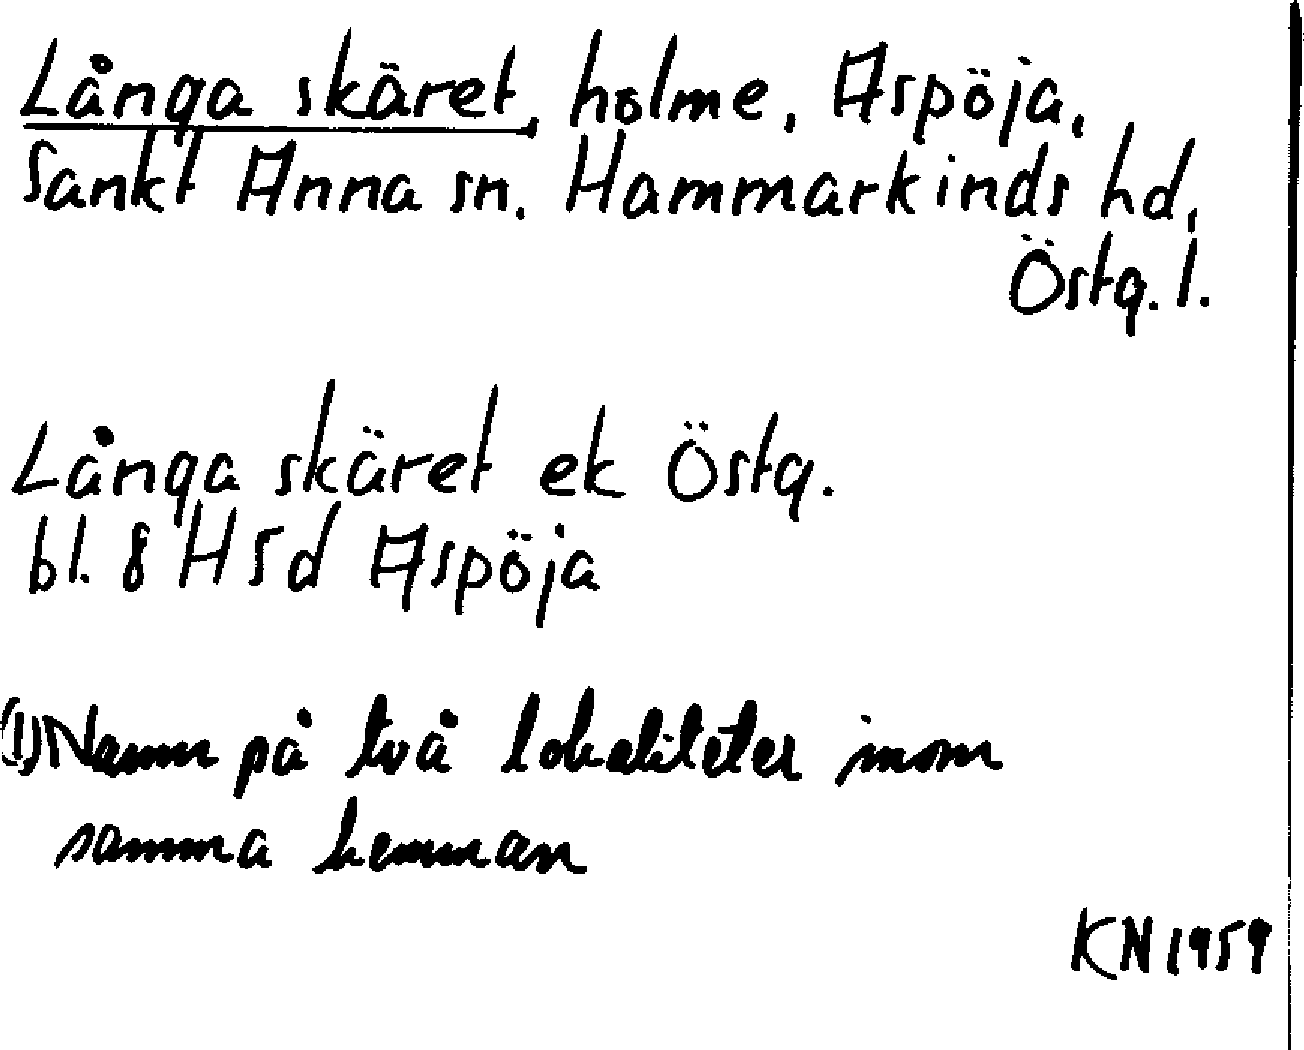 Långa skäret, holme, Aspöja,
Sankt Anna sn. Hammarkinds hd,
Östg. l.
Långa skäret ek Östg.
bl. 8 H5d Aspöja
(1) Namn på två lokaliteter inom
samma hemman
KN 1959